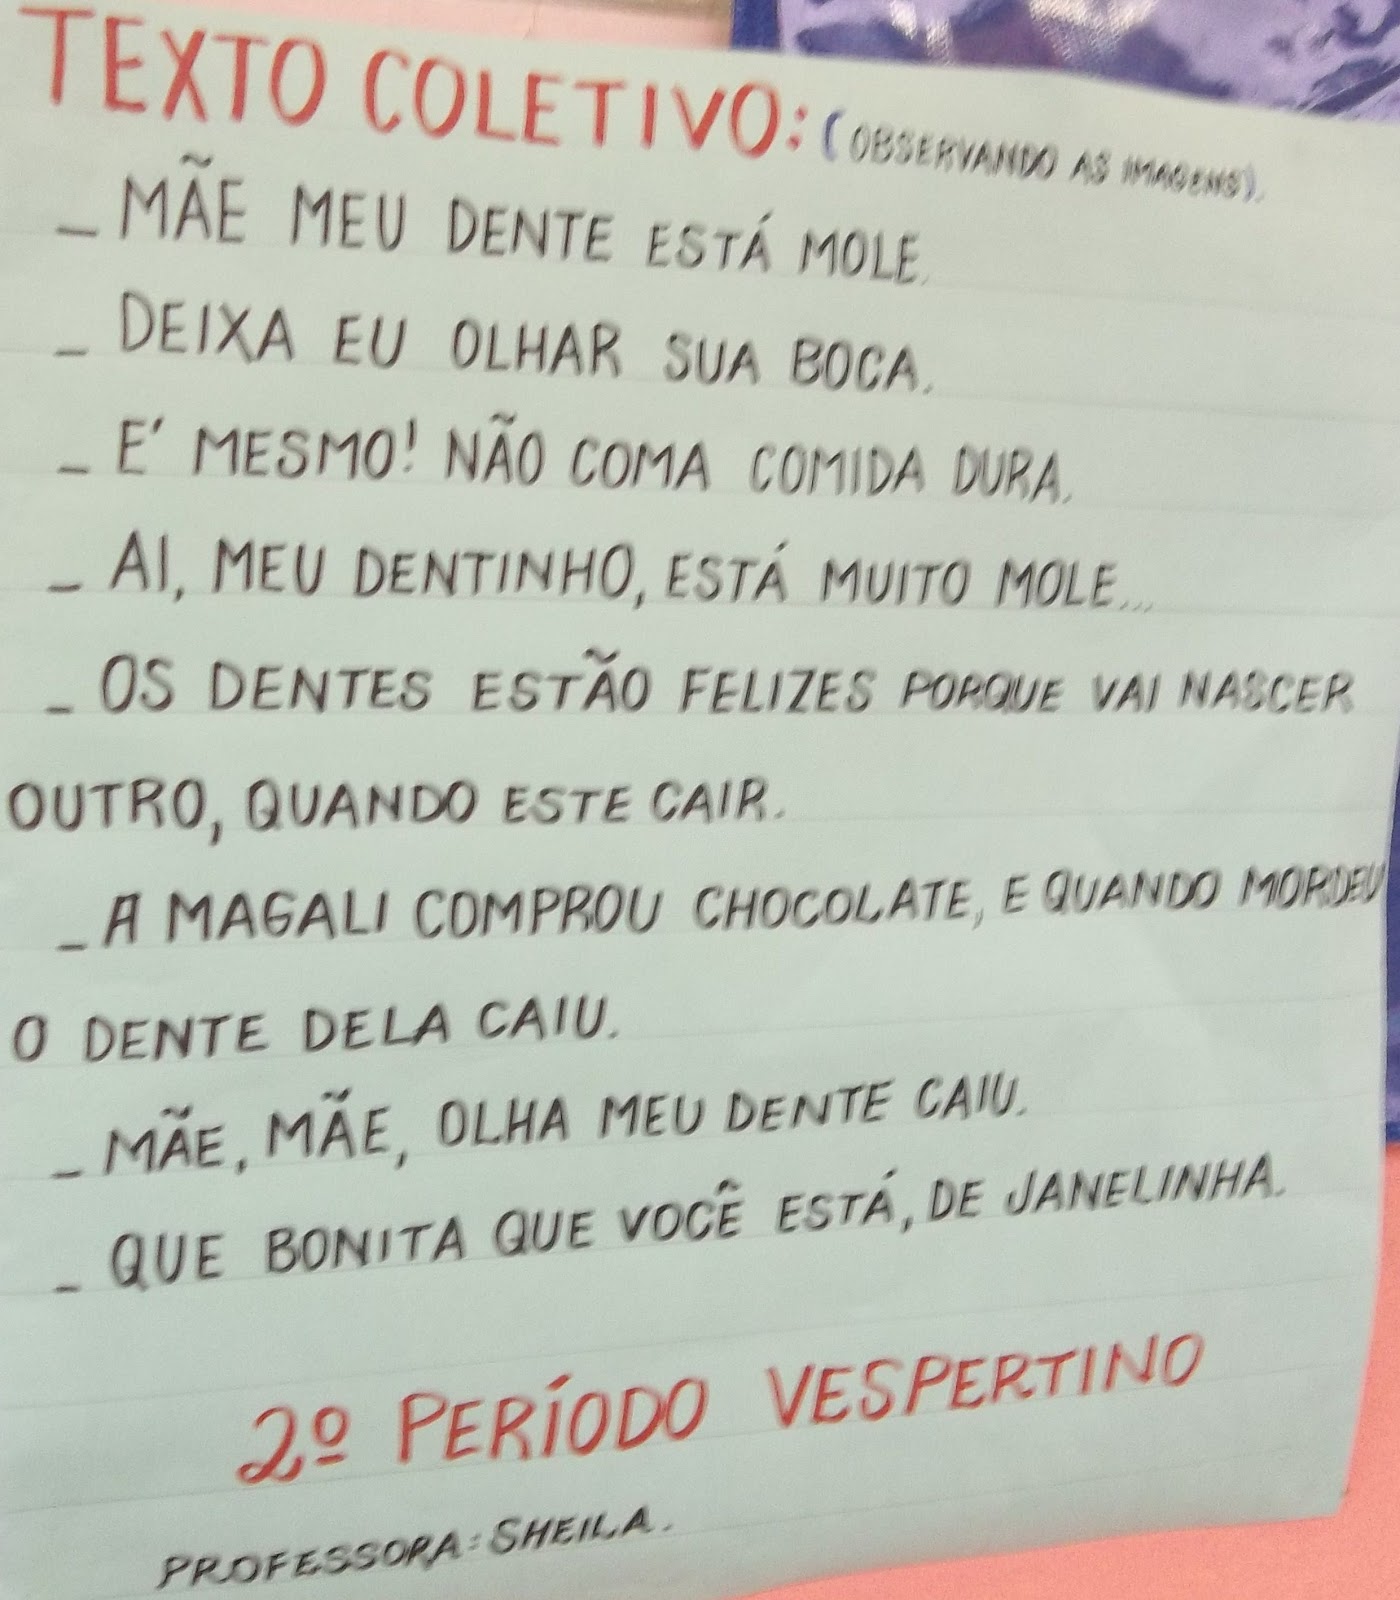 TEXTO COLETIVO: (OBSERVANDO AS IMAGENS).
_ MÃE MEU DENTE ESTÁ MOLE.
_ DEIXA EU OLHAR SUA BOCA.
_ E' MESMO! NÃO COMA COMIDA DURA.
_ AI, MEU DENTINHO, ESTÁ MUITO MOLE...
_ OS DENTES ESTÃO FELIZES PORQUE VAI NASCER
OUTRO, QUANDO ESTE CAIR.
_ A MAGALI COMPROU CHOCOLATE, E QUANDO MORDEU
O DENTE DELA CAIU.
_ MÃE, MÃE, OLHA MEU DENTE CAIU.
_ QUE BONITA QUE VOCÊ ESTÁ, DE JANELINHA.
2º PERÍODO VESPERTINO
PROFESSORA: SHEILA.